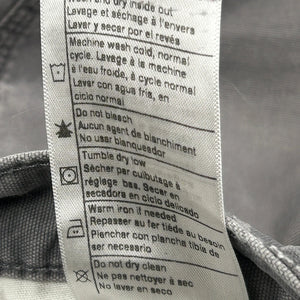 and dry inside out
Lavage et séchage à l'envers
Lavar y secar por el revés
Machine wash cold, normal
cycle. Lavage à la machine
à l'eau froide, à cycle normal
Lavar con agua fria, en
ciclo normal
Do not bleach
Aucun agent de blanchiment
No usar blanqueador
Tumble dry low
Sécher par culbutage à
réglage bas. Secar en
secadora en ciclo delicado
Warm iron if needed
Repasser au fer tiède au besoin
Planchar con plancha tibia de
ser necesario
Do not dry clean
Ne pas nettoyer à sec
No lavar en seco